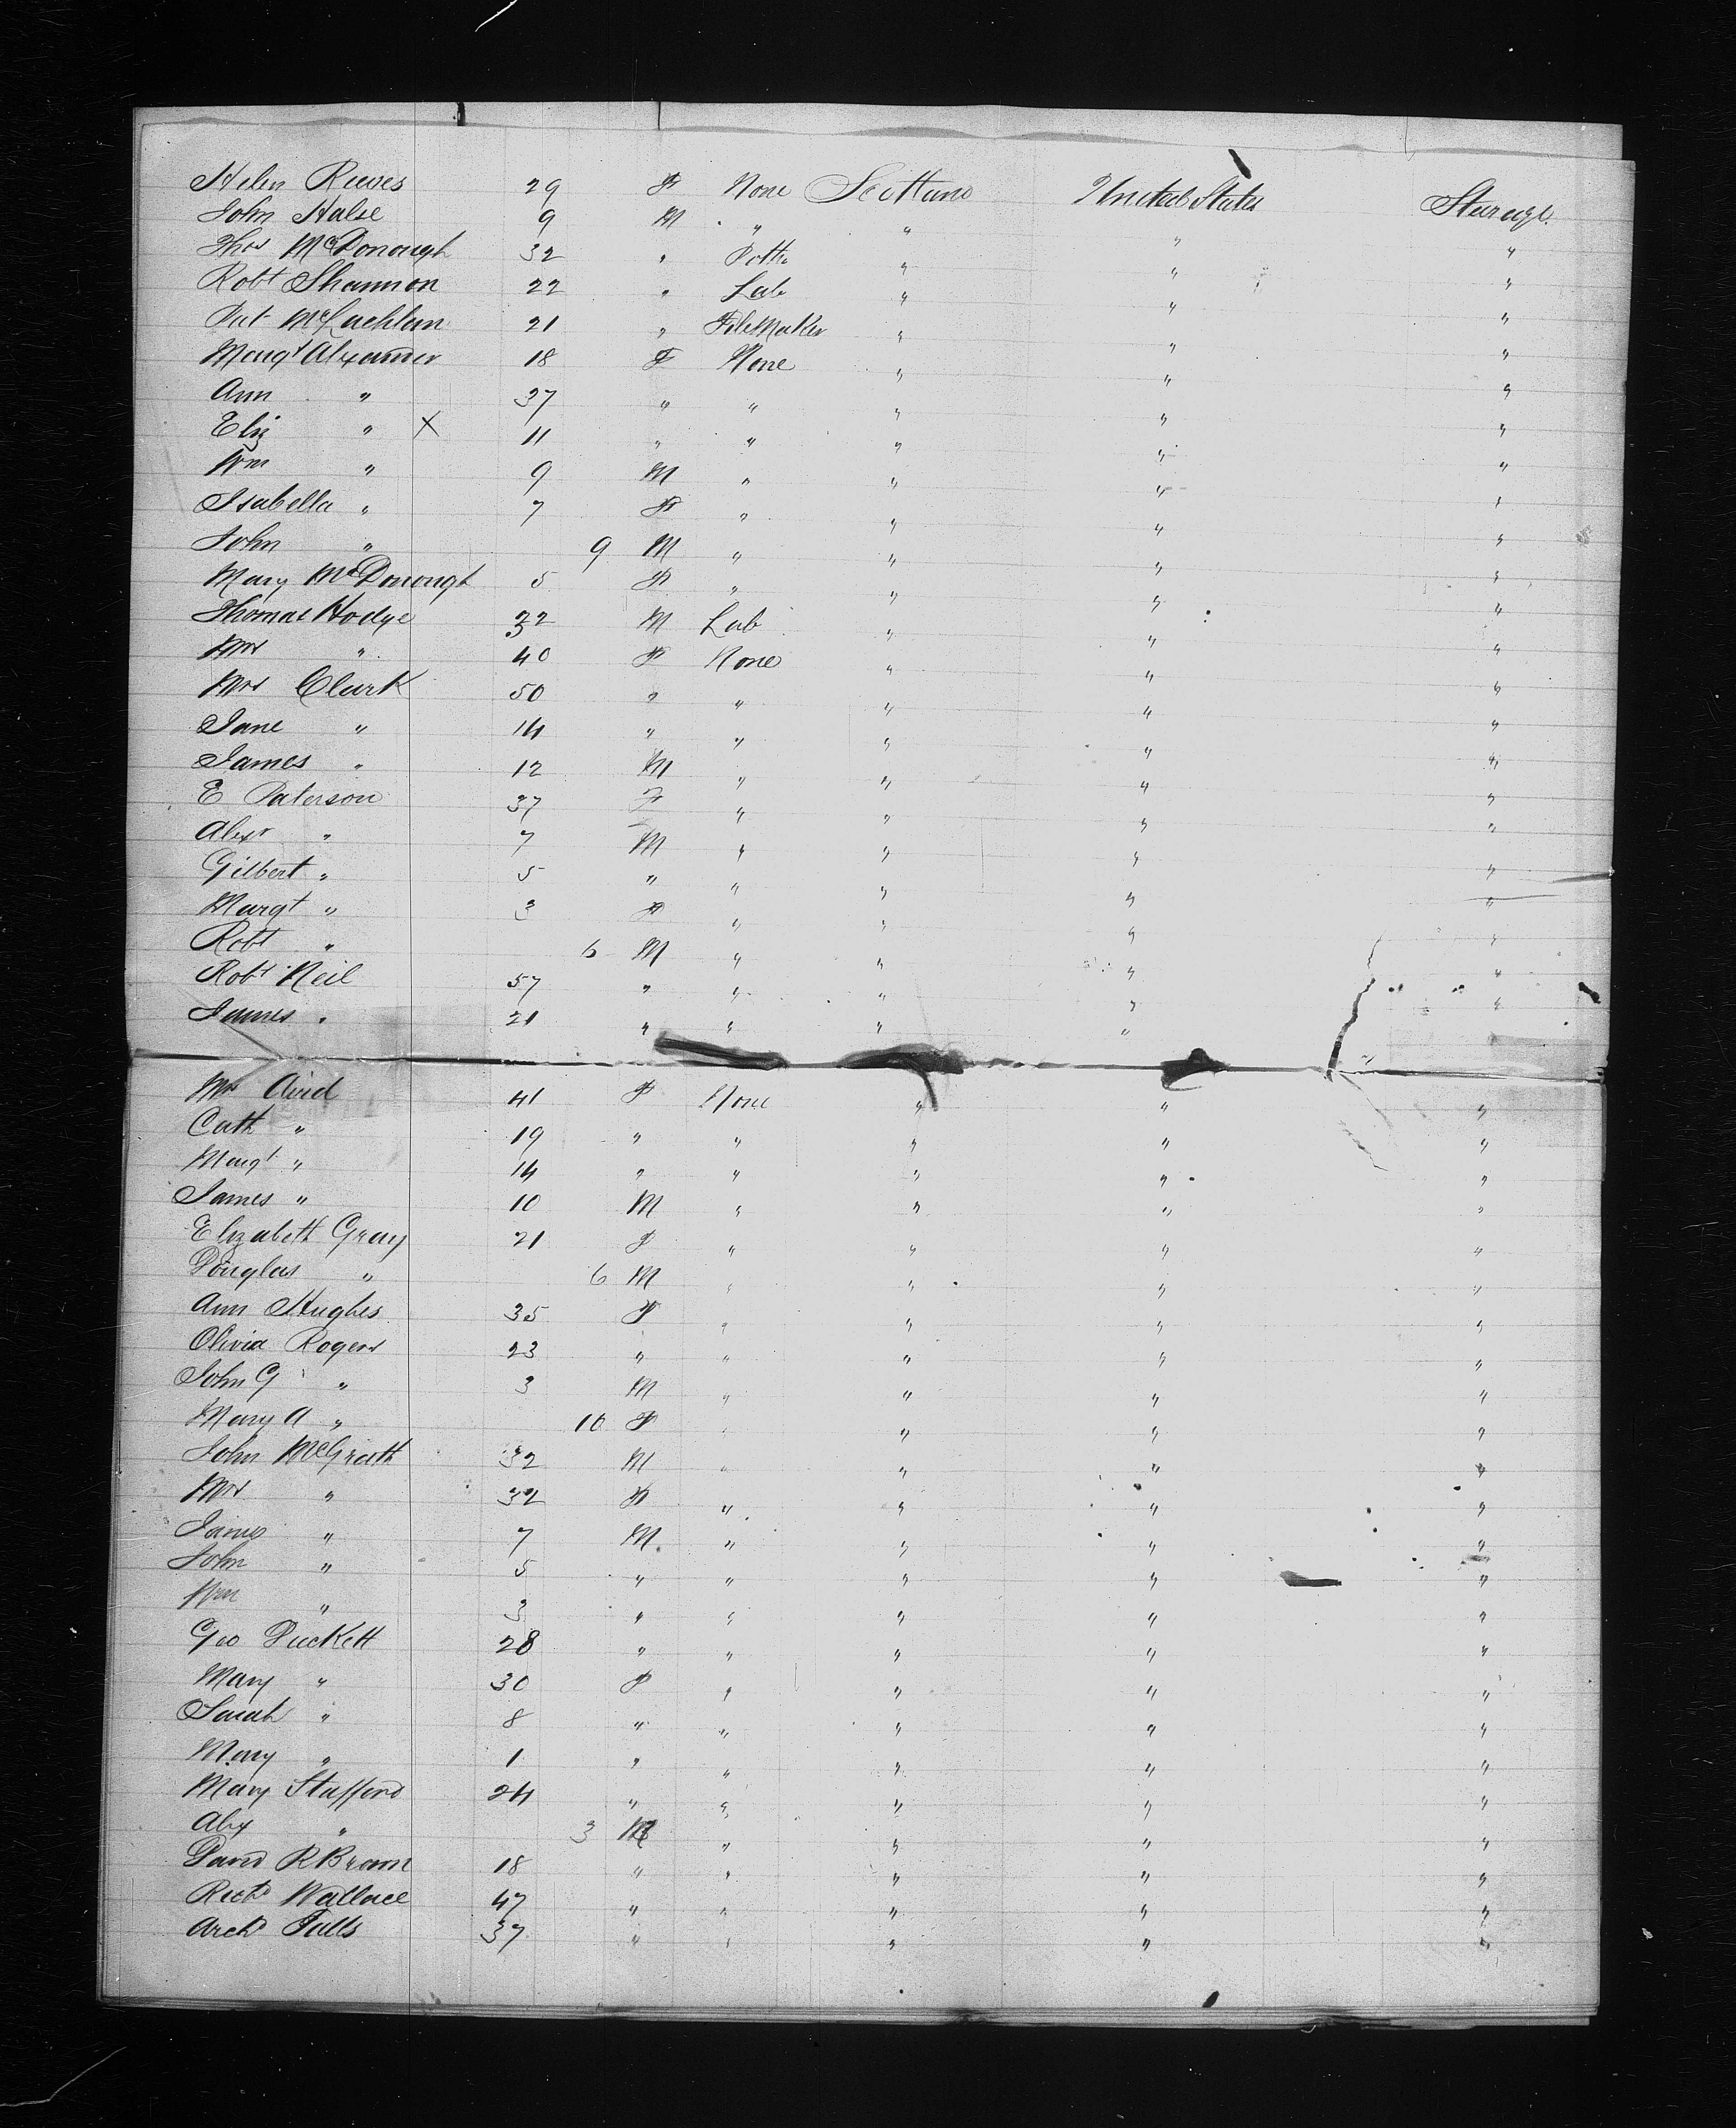 Helen Reeves 29 F None Scotland United States Steerage
John Halse 9 M " " " "
Thos McDonough 32 " Pottr " " "
Robt Shannon 22 " Lab " " "
Pat McLachlan 21 " FileMaker " " "
Margt Alexander 18 F None " " "
Ann " 37 " " " " "
Eliz " X 11 " " " " "
Wm " 9 M " " " "
Isabella " 7 F " " " "
John " 9 M " " " "
Mary McDonough 5 F " " " "
Thomas Hodge 32 M Lab " " "
Mrs " 40 F None " " "
Mrs Clark 50 " " " " "
Jane " 14 " " " " "
James " 12 M " " " "
E Paterson 37 F " " " "
Alexr " 7 M " " " "
Gilbert " 5 " " " " "
Margt " 3 F " " " "
Robt " 6 M " " " "
Robt Neil 57 " " " " "
James " 21 " " " "
Mrs Aird 41 F None " " "
Cath " 19 " " " " "
Margt " 14 " " " " "
James " 10 M " " " "
Elizabeth Gray 21 F " " " "
Douglas " 6 M " " " "
Ann Hughes 35 F " " " "
Olivia Rogers 23 " " " " "
John G " 3 M " " " "
Mary A " 10 F " " " "
John McGrath 32 M " " " "
Mrs " 32 F " " " "
James " 7 M " " " "
John " 5 " " " " "
Wm " 3 " " " " "
Geo Duckett 28 " " " " "
Mary " 30 F " " " "
Sarah " 8 " " " " "
Mary " 1 " " " " "
Mary Stafford 24 " " " " "
Alex " 3 M " " " "
David R Brown 18 " " " " "
Richd Wallace 47 " " " " "
Archd Falls 37 " " " " "